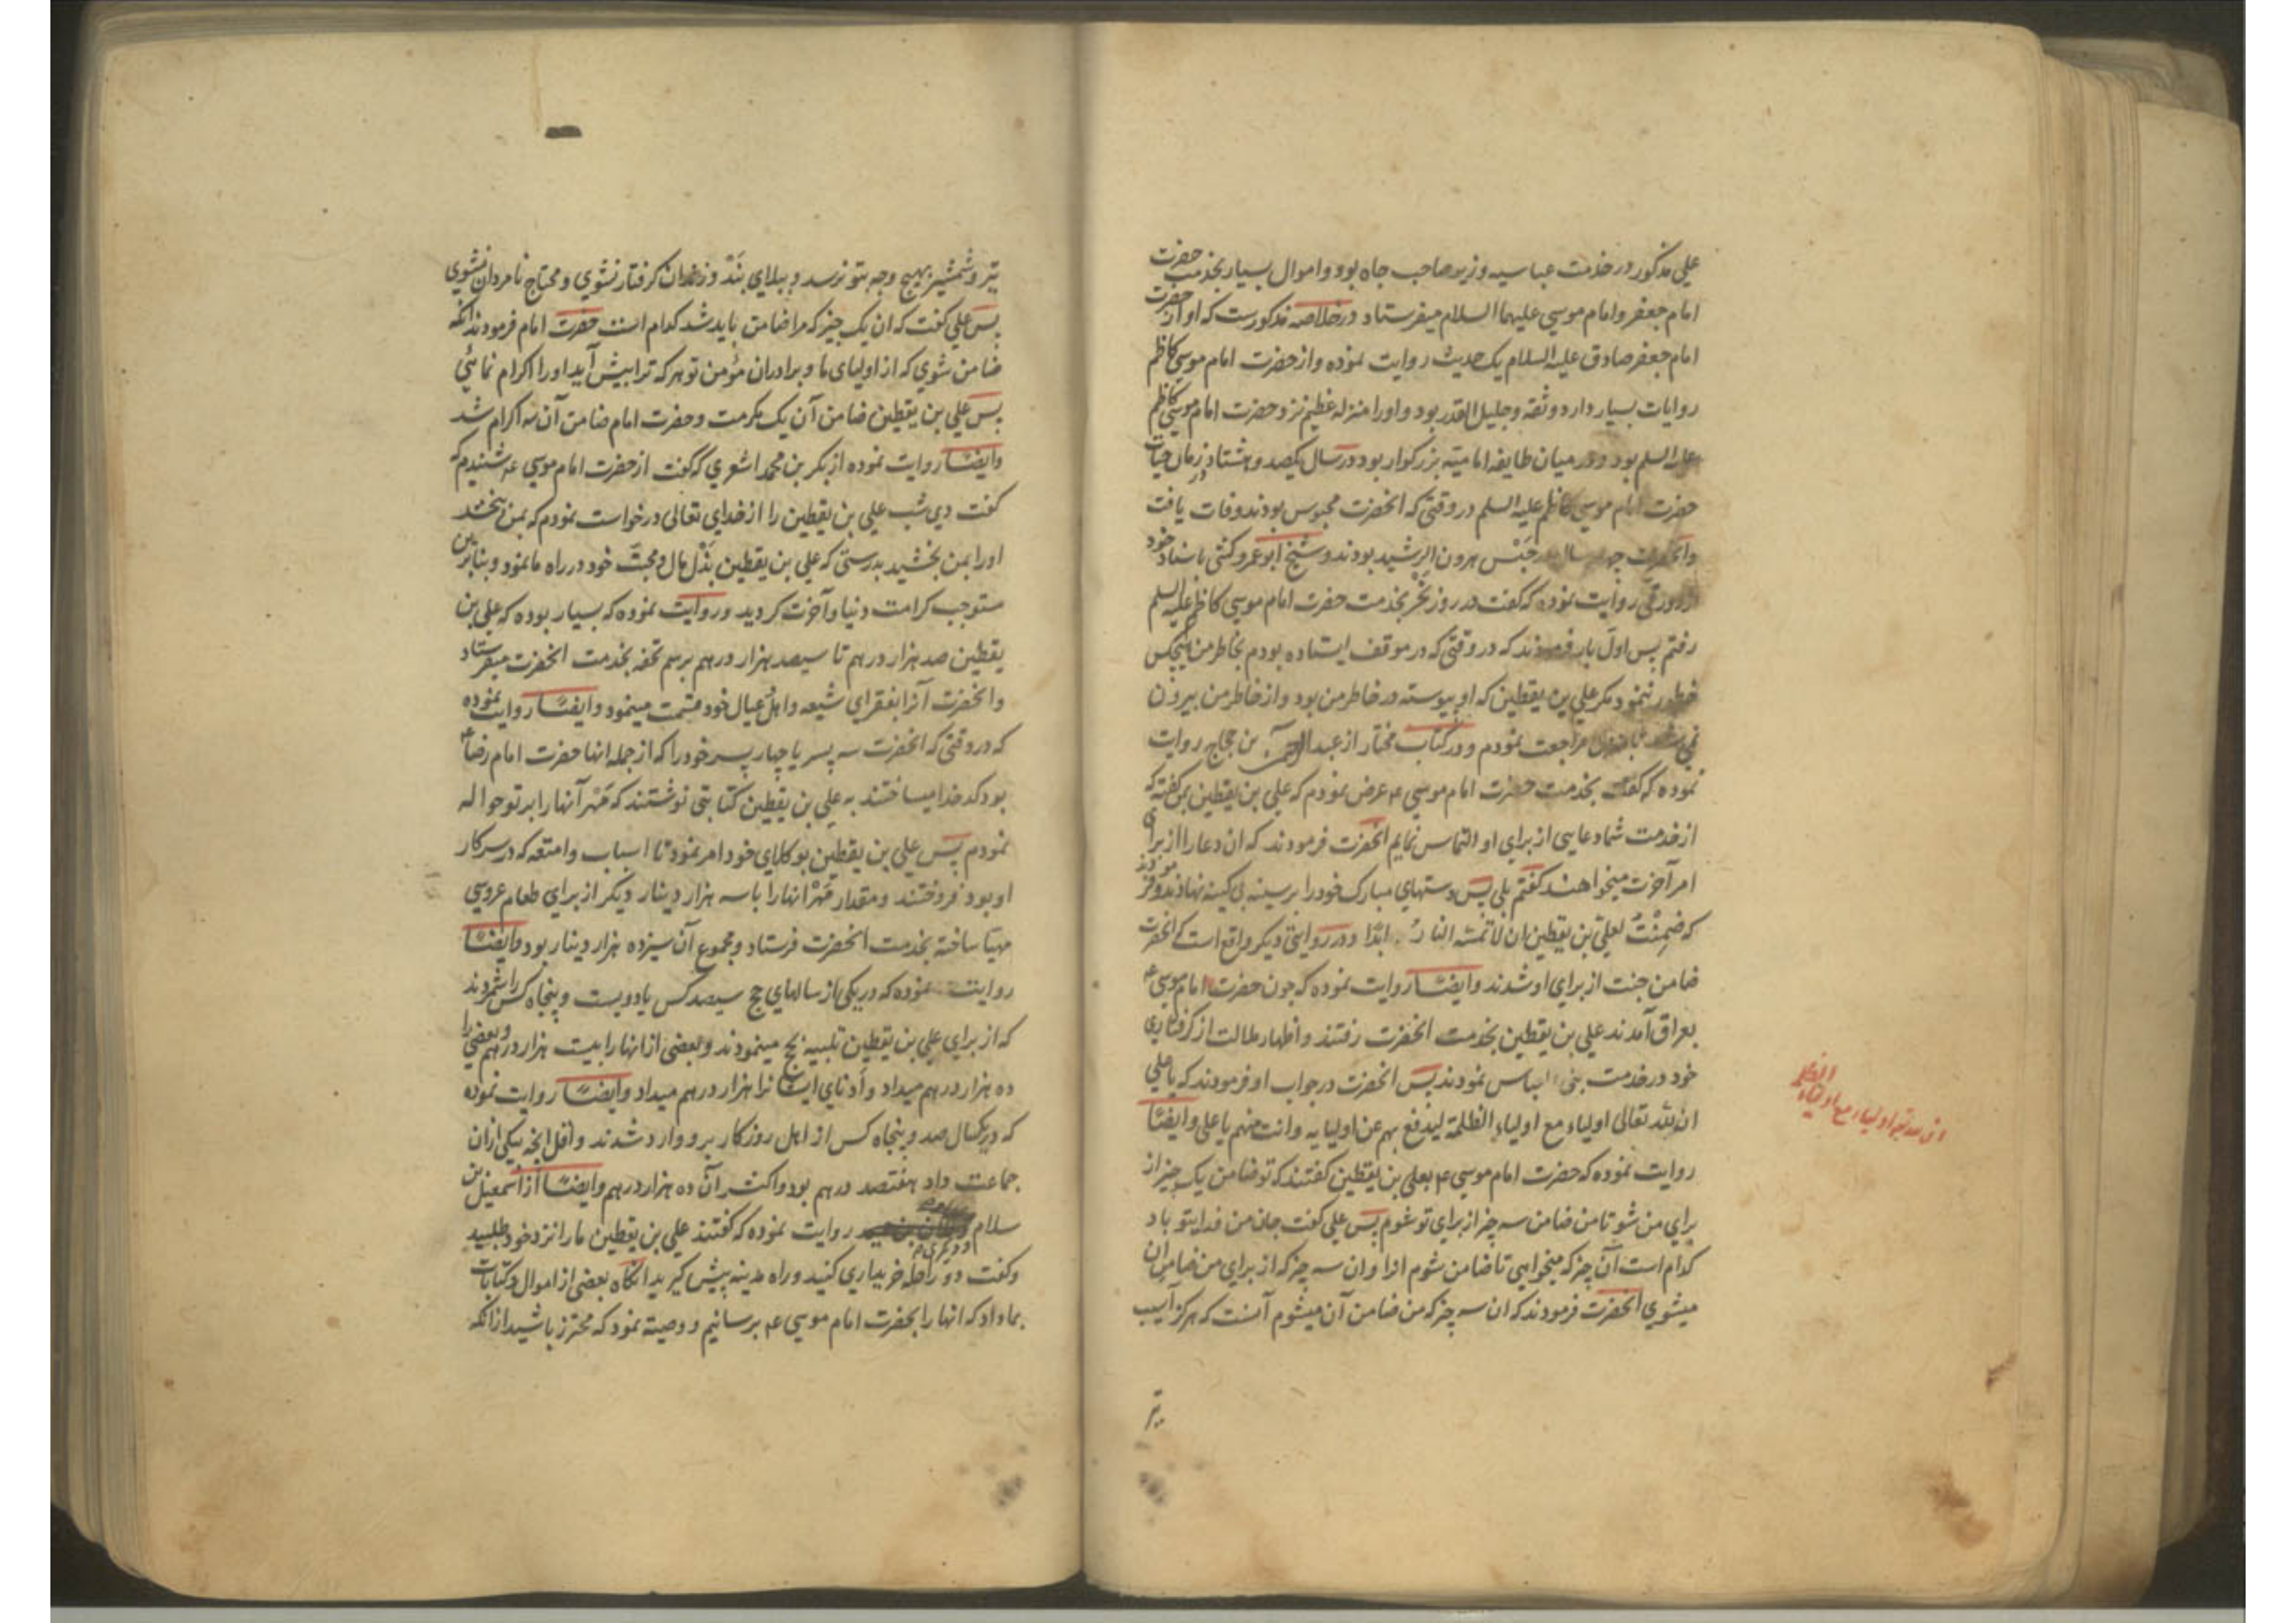 علی مذکور در خدمت عباسیه وزیر صاحب جاه بود و اموال بسیار بخدمت حضرت
امام جعفر و امام موسی علیهما السلام میفرستاد در خلاصه مذکورست که او از حضرت
امام جعفر صادق علیه السلام یک حدیث روایت نموده و از حضرت امام موسی کاظم
روایات بسیار دارد و ثقه و جلیل القدر بود و او را منزله عظیم نزد حضرت امام موسی کاظم
علیه السلم بود و در میان طایفه امامیّه بزرکوار بود در سال یکصد و هشتاد در زمان حیات
حضرت امام موسی کاظم علیه السلم در وقتی که انحضرت محبوس بودند وفات یافت
وانحضرت چهار سال در حَبْس هرون الرشید بودند و شیخ ابو عمرو کشی باسناد خود
از دورقی روایت نموده که کفت در روز نَحْر بخدمت حضرت امام موسی کاظم علیه السلم
رفتم پس اول بار فرمودند که در وقتی که در موقف ایستاده بودم بخاطر من هیچکس
خطور ننمود مکر علی بن یقطین که او پیوسته در خاطر من بود و از خاطر من بیرون
نمی مراجعت نمودم و در کتاب مختار از عبد الرحمن بن حجاج روایت
نموده که کفت بخدمت حضرت امام موسی ع عرض نمودم که علی بن یقطین بمن کفته که
از خدمت شما دعایی از برای او التماس نمایم انحضرت فرمودند که ان دعا را از برای
امر آخرت میخواهند کفتم بلی پس دستهای مبارک خود را بر سینه بی کینه نهادند و فرمودند
که ضَمِنْتُ لعلی بن یقطین ان لا تمسّه النارُ ابدًا و در روایتی دیکر واقع است که انحضرت
ضامن جنت از برای او شدند وایضًا روایت نموده که چون حضرت امام موسی ع
بعراق آمدند علی بن یقطین بخدمت انحضرت رفتند و اظهار ملالت از کرفتاری
خود در خدمت بنی العباس نمودند پس انحضرت در جواب او فرمودند که یا علی
ان لله تعالی اولیاء مع اولیاء الظلمة لیدفع بهم عن اولیایه وانت منهم یا علی وایضًا
روایت نموده که حضرت امام موسی ع بعلی بن یقطین کفتند که تو ضامن یک چیز از
برای من شو تا من ضامن سه چیز از برای تو شوم پس علی کفت جان من فدای تو باد
کدام است آن چیز که میخواهی تا ضامن شوم انرا و ان سه چیز که از برای من ضامن ان
میشوی انحضرت فرمودند که ان سه چیز که من ضامن آن میشوم آنست که هرکز آسیب
تیر
ان لله تعالی اولیاء مع اولیاء
الظلمه
تیر و شمشیر بهیچ وجه بتو نرسد و ببلای بَند و زندان کرفتار نشوی و محتاج نامردان نشوی
پس علی کفت که ان یک چیز که مرا ضامن باید شد کدام است حضرت امام فرمودند انکه
ضامن شوی که از اولیای ما و برادران مؤمن تو هر که ترا پیش آید او را اکرام نمائی
پس علی بن یقطین ضامن آن یک مکرمت و حضرت امام ضامن آن سه اکرام شد
وایضًا روایت نموده از بکر بن محمد اشعری که کفت از حضرت امام موسی ع شنیدم که
کفت دی شب علی بن یقطین را از خدای تعالی درخواست نمودم که بمن بخشد
او را بمن بخشید بدرستی که علی بن یقطین بَذْل مال و محبت خود در راه ما نمود و بنا بر این
مستوجب کرامت دنیا و آخرت کردید و روایت نموده که بسیار بوده که علی بن
یقطین صد هزار درهم تا سیصد هزار درهم برسم تحفه بخدمت انحضرت میفرستاد
وانحضرت آنرا بفقرای شیعه و اهل عیال خود قسمت مینمود وایضًا روایت نموده
که در وقتی که انحضرت سه پسر یا چهار پسر خود را که از جمله انها حضرت امام رضا ع
بود کدخدا میساختند به علی بن یقطین کتابتی نوشتند که مَهْر آنها را بر تو حواله
نمودم پس علی بن یقطین بوکلای خود امر نمود تا اسباب و امتعه که در سرکار
او بود فروختند و مقدار مَهْر انها را با سه هزار دینار دیکر از برای طعام عروسی
مهیا ساخته بخدمت انحضرت فرستاد و مجموع آن سیزده هزار دینار بود وایضًا
روایت نموده که در یکی از سالهای حج سیصد کس یا دویست و پنجاه کس را شمردند
که از برای علی بن یقطین تلبیه بحج مینمودند و بعضی از انها را بیست هزار درهم و بعضی را
ده هزار درهم میداد و اَدنای ایشانرا هزار درهم میداد وایضًا روایت نموده
که در یکسال صد و پنجاه کس از اهل روزکار برو وارد شدند و اقل انچه بیکی از ان
جماعت داد هفتصد درهم بود و اکثر آن ده هزار درهم وایضًا از اسمعیل بن
سلام و دیکری روایت نموده که کفتند علی بن یقطین ما را نزد خود طلبید
وکفت دو راحله خریداری کنید و راه مدینه پیش کیرید انکاه بعضی از اموال و کتابات
بما داد که انها را بحضرت امام موسی ع برسانیم و وصیته نمود که محترز باشید از انکه